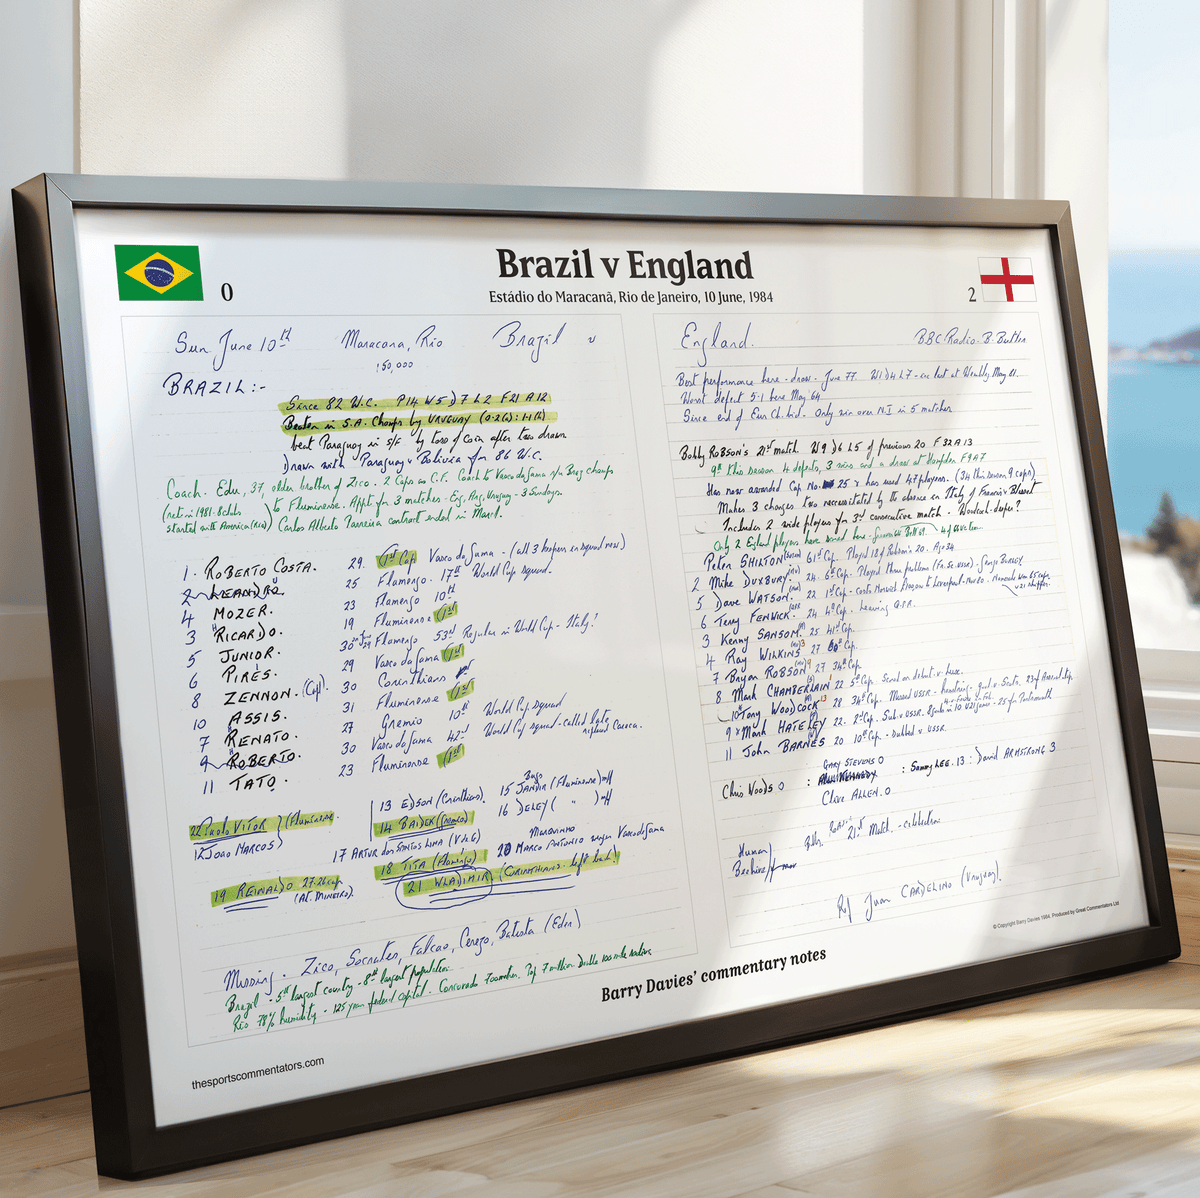 Brazil v England
Estádio do Maracanã, Rio de Janeiro, 10 June, 1984
0
2
Sun. June 10th Maracana, Rio Brazil v
150,000
BRAZIL:-
Since 82 W.C. P14 W5 D7 L2 F21 A12
Beaten in S.A. Champs by URUGUAY (0.2(a): 1.1(h)
beat Paraguay in S/F by toss of coin after two draws
Drawn with Paraguay & Bolivia for 86 W.C.
Coach. Edu, 37, older brother of Zico. 2 Caps as C.F. Coach to Vasco da Gama Champs
to Fluminense. Appt. for 3 matches - Eng, Arg, Uruguay - 3 Sundays.
started with America (Rio) Carlos Alberto Parreira contract ended in March.
1. ROBERTO COSTA. 29. (1st Cap) Vasco da Gama - (all 3 keepers in squad new)
2 LEANDRO. 25 Flamengo. 17th World Cup squad.
4 MOZER. 23 Flamengo 10th
3 RICARDO. 19 Fluminense (1st)
5 JUNIOR. 30 Flamengo 53rd Regular in World Cup - Italy?
6 PIRES. 29 Vasco da Gama (1st)
8 ZENNON. (Cap) 30 Corinthians
10 ASSIS. 31 Fluminense (1st)
7 RENATO. 27 Gremio 10th World Cup squad
9 ROBERTO. 30 Vasco da Gama 42nd World Cup squad - called late replaced Careca.
11 TATO. 23 Fluminense (1st)
22 PAULO VITOR (Fluminense)
12 (JOAO MARCOS)
19 REINALDO 27. 26 caps
(At. MINEIRO).
13 EDSON (Corinthians). 15 JANDIR (Fluminense)
14 BAIDEK (Gremio) 16 DELEY ( " )
17 ARTUR dos SANTOS LIMA (V da G) 20 MARCO ANTONIO Vasco da Gama
18 TITA (Flamengo)
21 WLADIMIR (CORINTHIANS - left back!)
Missing. Zico, Socrates, Falcao, Cerezo, Batista (Eder)
Brazil - 5th largest country - 8th largest population
Rio 78% humidity - 125 years federal capital. Corcovado
England. BBC Radio - B. Butler
Best performance here - draw - June 77. W1 D4 L7 - last at Wembley May 81.
Worst defeat 5.1 here May '64
Since end of Eur Ch. bid. Only win over N.I in 5 matches
Bobby ROBSON'S 21st match W9 D6 L5 of previous 20 F32 A13
9th this season 4 defeats, 3 wins and a draw at Hampden F9 A7
Has now awarded Cap No. 25 & has used 47 players. (34 this season 9 caps)
Makes 3 changes two necessitated by the absence in Italy of Francis & Blissett
Includes 2 wide players for 3rd consecutive match - Woodcock - deeper?
Only 2 England players have scored here -
Peter SHILTON 61st Cap. Played 12 of Robson's 20. Age 34
2 Mike DUXBURY. 24. 6th Cap.
5 Dave WATSON. 22 1st Cap -
6 Terry FENWICK. 24 4th Cap. Leaving Q.P.R.
3 Kenny SANSOM. 25 41st Cap.
4 Ray WILKINS 27 60th Cap.
7 Bryan ROBSON 27 34th Cap.
8 Mark CHAMBERLAIN 22 5th Cap. Scored on debut v Lux.
10 Tony WOODCOCK 28 34th Cap. Missed USSR
9 Mark HATELEY 22. 2nd Cap. Sub v USSR.
11 John BARNES 20 10th Cap. - subbed v USSR
Chris WOODS 0 : GARY STEVENS 0 : Sammy LEE. 13 : David ARMSTRONG 3
Alan KENNEDY
Clive ALLEN. 0
21st Match. - celebration
Ref Juan CARDELINO (Uruguay).
© Copyright Barry Davies 1984. Produced by Great Commentators Ltd
Barry Davies' commentary notes
thesportscommentators.com